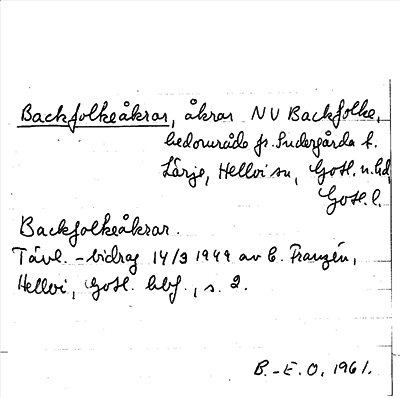 Backfolkeåkrar, åkrar NV Backfolke,
hedområde fr. Sudergårda t.
Lärje, Hellvi sn, Gotl. n. hd,
Gotl. l.
Backfolkeåkrar.
Tävl.-bidrag 14/3 1949 av E. Franzén,
Hellvi, Gotl. hbf., s. 2.
B.-E. O. 1961.